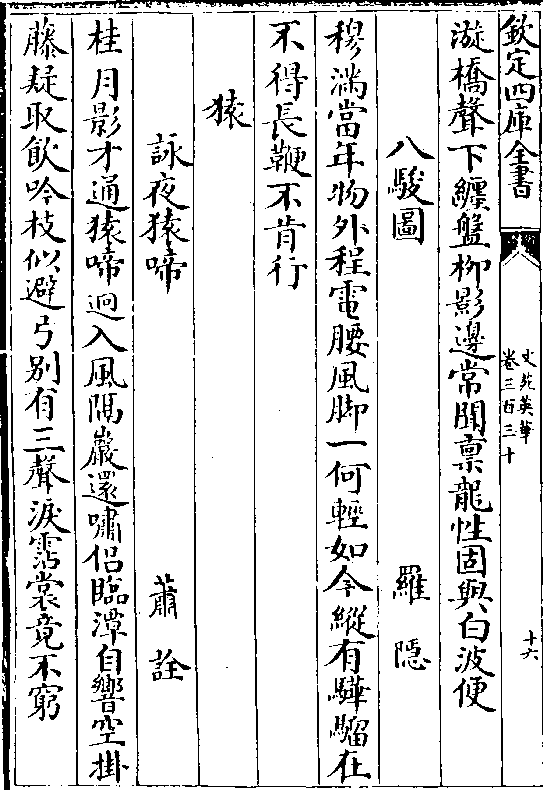 欽定四庫全書
文苑英華
卷三百三十
十六
漩橋聲下纏盤柳影邊常聞禀龍性固與白波便
八駿圖
羅隱
穆滿當年物外程電腰風脚一何輕如今縱有驊騮在
不得長鞭不肯行
猿
詠夜猿啼
蕭詮
桂月影才通猿啼迥入風隔巖還嘯侣臨潭自響空掛
藤疑取飲吟枝似避弓别有三聲淚霑裳竟不窮